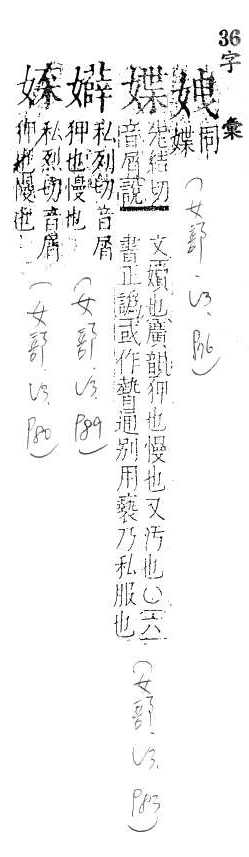 36 字彙
同媟
(女部.丑.P86)
媟 先結切音屑說文嬻也廣韻狎也慢也又汚也○六
書正譌或作暬通別用褻乃私服也
(女部.丑.P83)
私列切音屑
狎也慢也
(女部.丑.P89)
私列切音屑
狎也慢也
(女部.丑.P80)